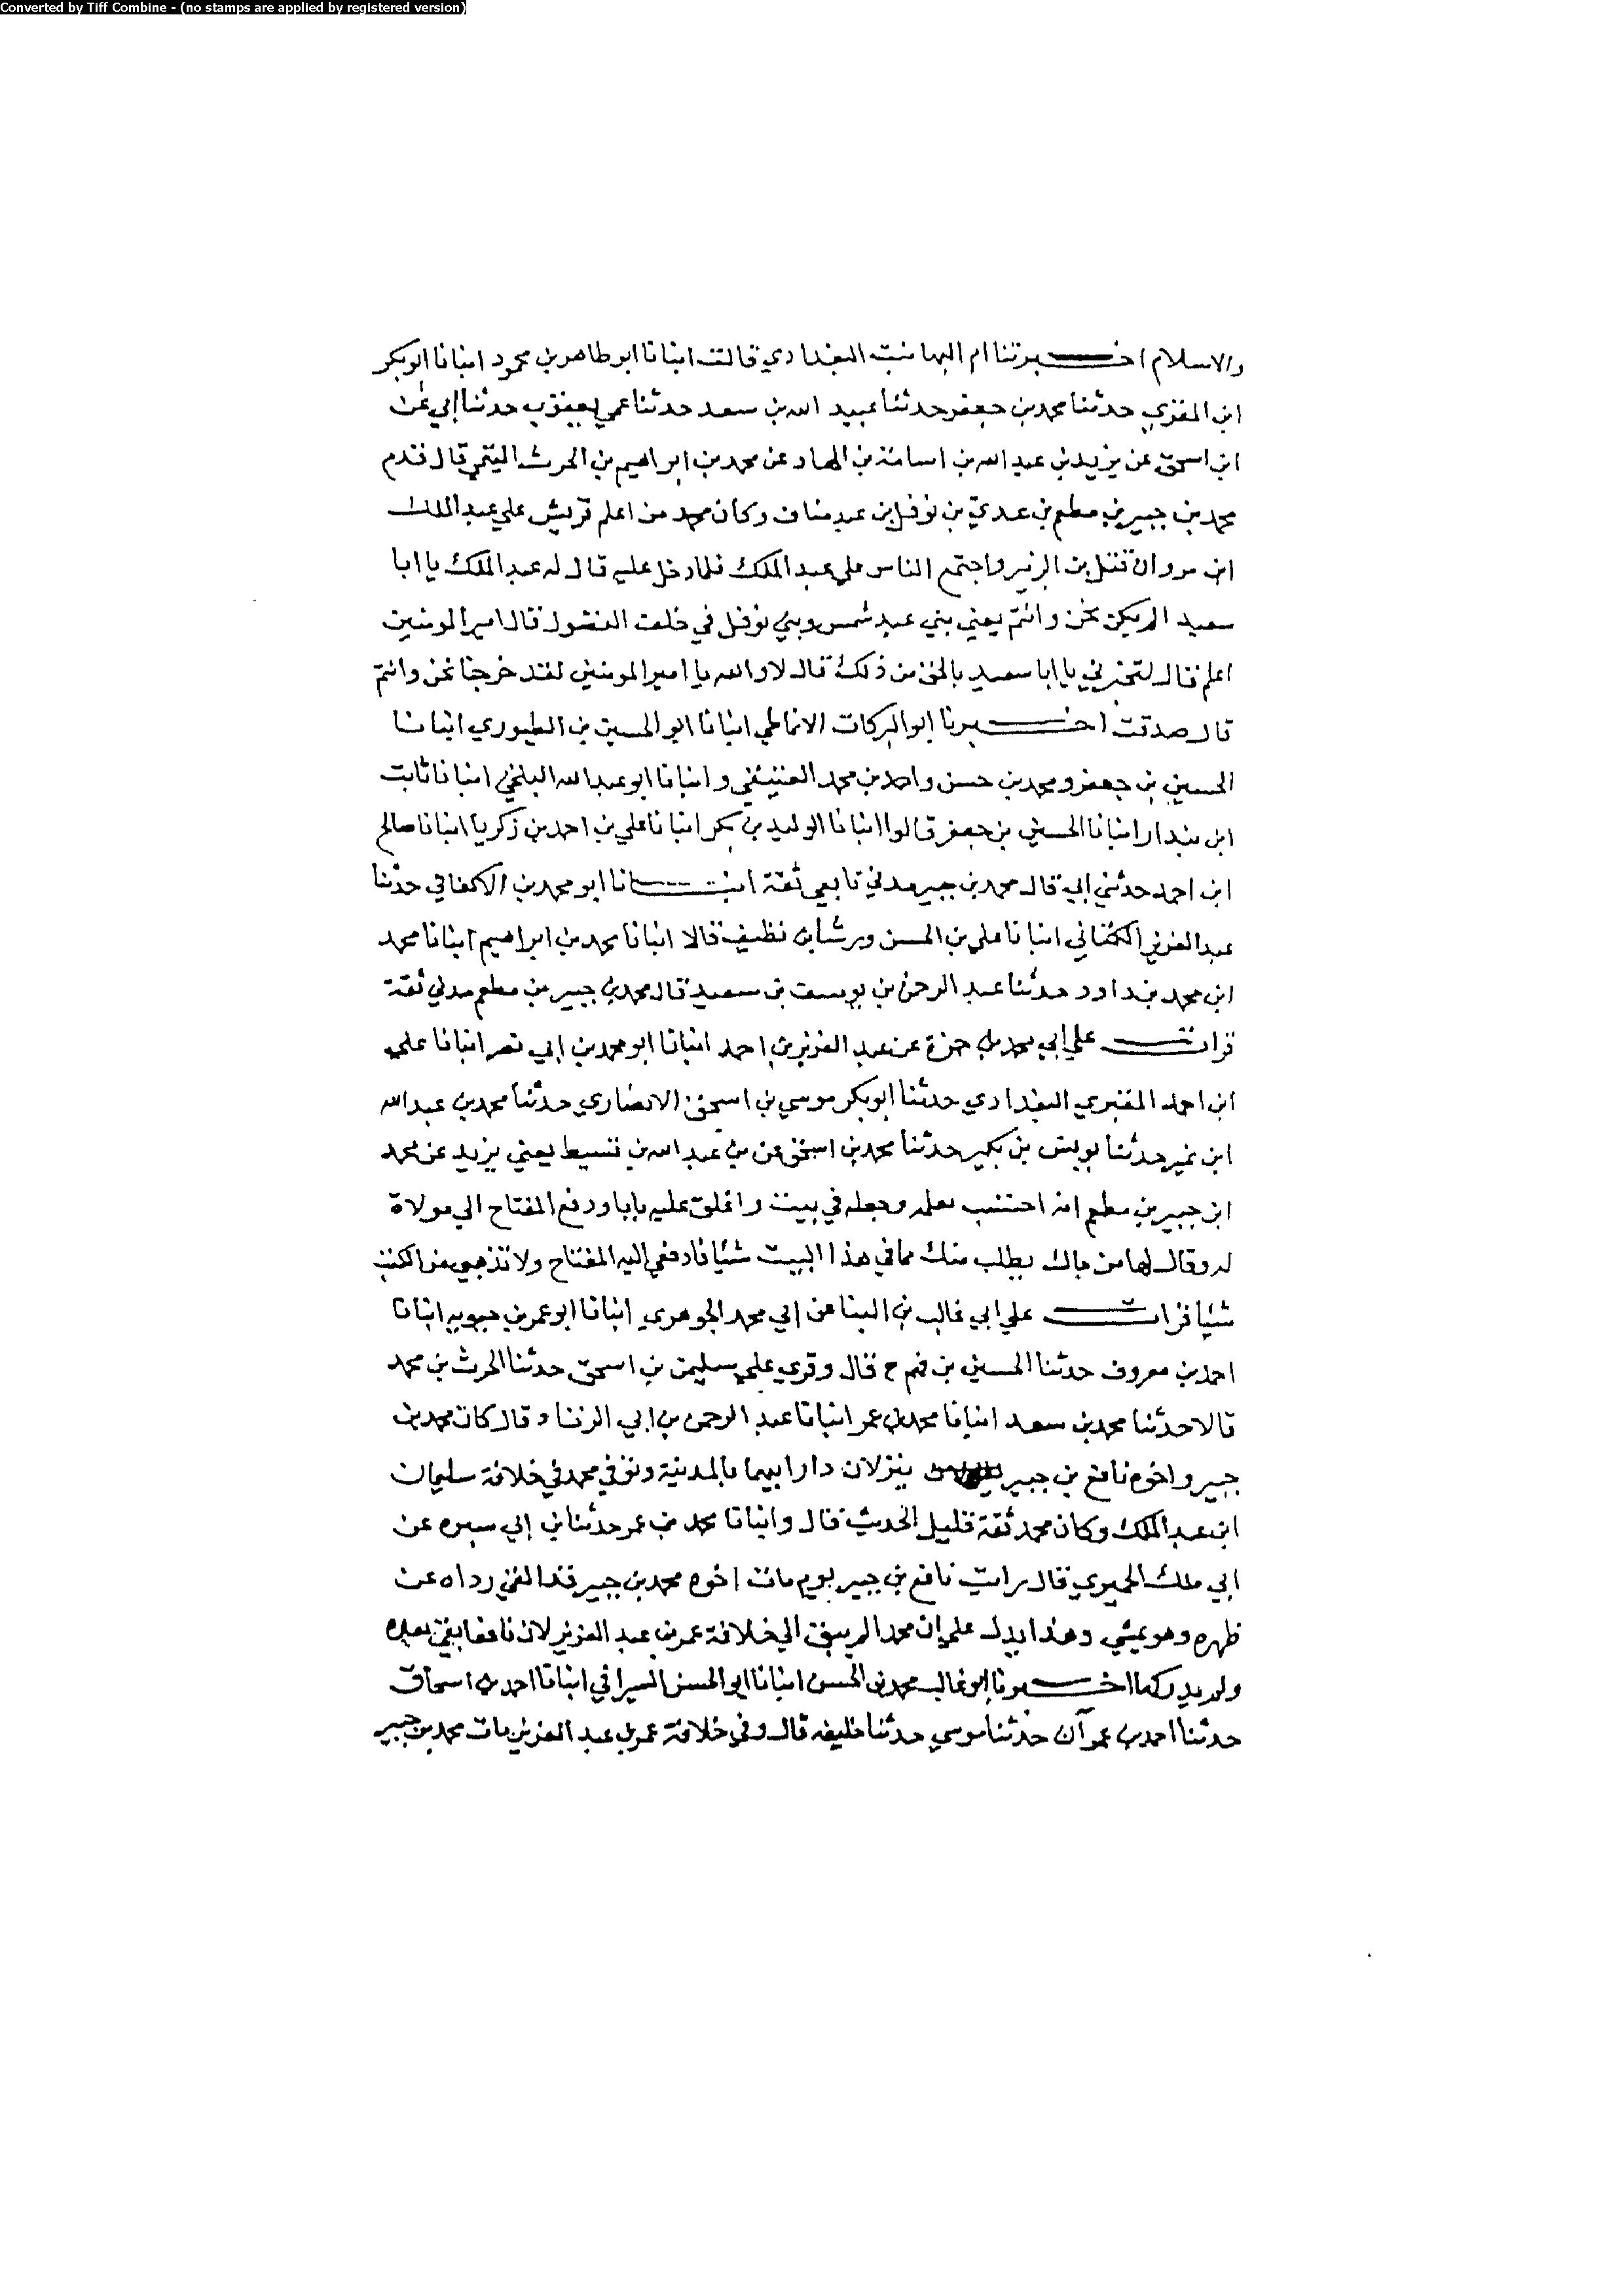 Converted by Tiff Combine - (no stamps are applied by registered version)
والاسلام اخبرتنا ام البها بنت البغدادي قالت انبانا ابو طاهر بن محمود انبانا ابو بكر
ابن المقري حدثنا محمد بن جعفر حدثنا عبيد الله بن سعد حدثنا عمي يعقوب حدثنا ابي عن
ابن اسحق عن يزيد بن عبد الله بن اسامة بن الهاد عن محمد بن ابراهيم بن الحرث التيمي قال قدم
محمد بن جبير بن مطعم بن عدي بن نوفل بن عبد مناف وكان محمد من اعلم قريش علي عبد الملك
ابن مروان قتل بن الزبير واجتمع الناس علي عبد الملك فلما دخل عليه قال له عبد الملك يا ابا
سعيد الم يكن نحن وانتم يعني بني عبد شمس وبني نوفل في حلف الفضول قال امير المومنين
اعلم قال لتخبرني يا ابا سعيد بالحق من ذلك قال لا والله يا امير المومنين لقد خرجنا نحن وانتم
قال صدقت اخبرنا ابو البركات الانماطي انبانا ابو الحسين بن الطيوري انبانا
الحسين بن جعفر ومحمد بن حسن واحمد بن محمد العتيقي وانبانا ابو عبد الله البلخي انبانا ثابت
ابن بندار انبانا الحسين بن جعفر قالوا انبانا الوليد بن بكر انبانا علي بن احمد بن زكريا انبانا صالح
ابن احمد حدثني ابي قال محمد بن جبير مدني تابعي ثقة انبانا ابو محمد بن الاكفاني حدثنا
عبد العزيز الكتاني انبانا علي بن الحسن ورشا بن نظيف قالا انبانا محمد بن ابراهيم انبانا محمد
ابن محمد بن داود حدثنا عبد الرحمن بن يوسف بن سعيد قال محمد بن جبير بن مطعم مدني ثقة
قرات علي ابي محمد بن حمزة عن عبد العزيز بن احمد انبانا ابو محمد بن ابي نصر انبانا علي
ابن احمد المقبري البغدادي حدثنا ابو بكر موسي بن اسحق الانصاري حدثنا محمد بن عبد الله
ابن نمير حدثنا يونس بن بكير حدثنا محمد بن اسحق عن بن عبد الله بن قسيط يعني يزيد عن محمد
ابن جبير بن مطعم انه احتسب بعلمه وجعله في بيت واغلق عليه بابا ودفع المفتاح الي مولاة
له وقال لها من جاك يطلب منك مما في هذا البيت شئيا فادفعي اليه المفتاح ولا تذهبي من الكتب
شئيا قرات علي ابي غالب بن البنا عن ابي محمد الجوهري انبانا ابو عمر بن حيويه انبانا
احمد بن معروف حدثنا الحسين بن فهم ح قال وقري علي سليمن بن اسحق حدثنا الحرث بن محمد
قالا حدثنا محمد بن سعد انبانا محمد بن عمر انبانا عبد الرحمن بن ابي الزناد قال كان محمد بن
جبير واخوه نافع بن جبير ينزلان دار ابيهما بالمدينة وتوفي محمد في خلافة سليمان
ابن عبد الملك وكان محمد ثقة قليل الحديث قال وانبانا محمد بن عمر حدثنا بن ابي سبره عن
ابي ملك الحميري قال رايت نافع بن جبير يوم مات اخوه محمد بن جبير قد القي رداه عن
ظهره وهو يمشي وهذا يدل علي ان محمدا لم يبق الي خلافة عمر بن عبد العزيز لان نافعا بقي بعده
ولم يدركها اخبرنا ابو غالب محمد بن الحسن انبانا ابو الحسن السيرافي انبانا احمد بن اسحاق
حدثنا احمد بن عمران حدثنا موسي حدثنا خليفه قال وفي خلافة عمر بن عبد العزيز مات محمد بن جبير